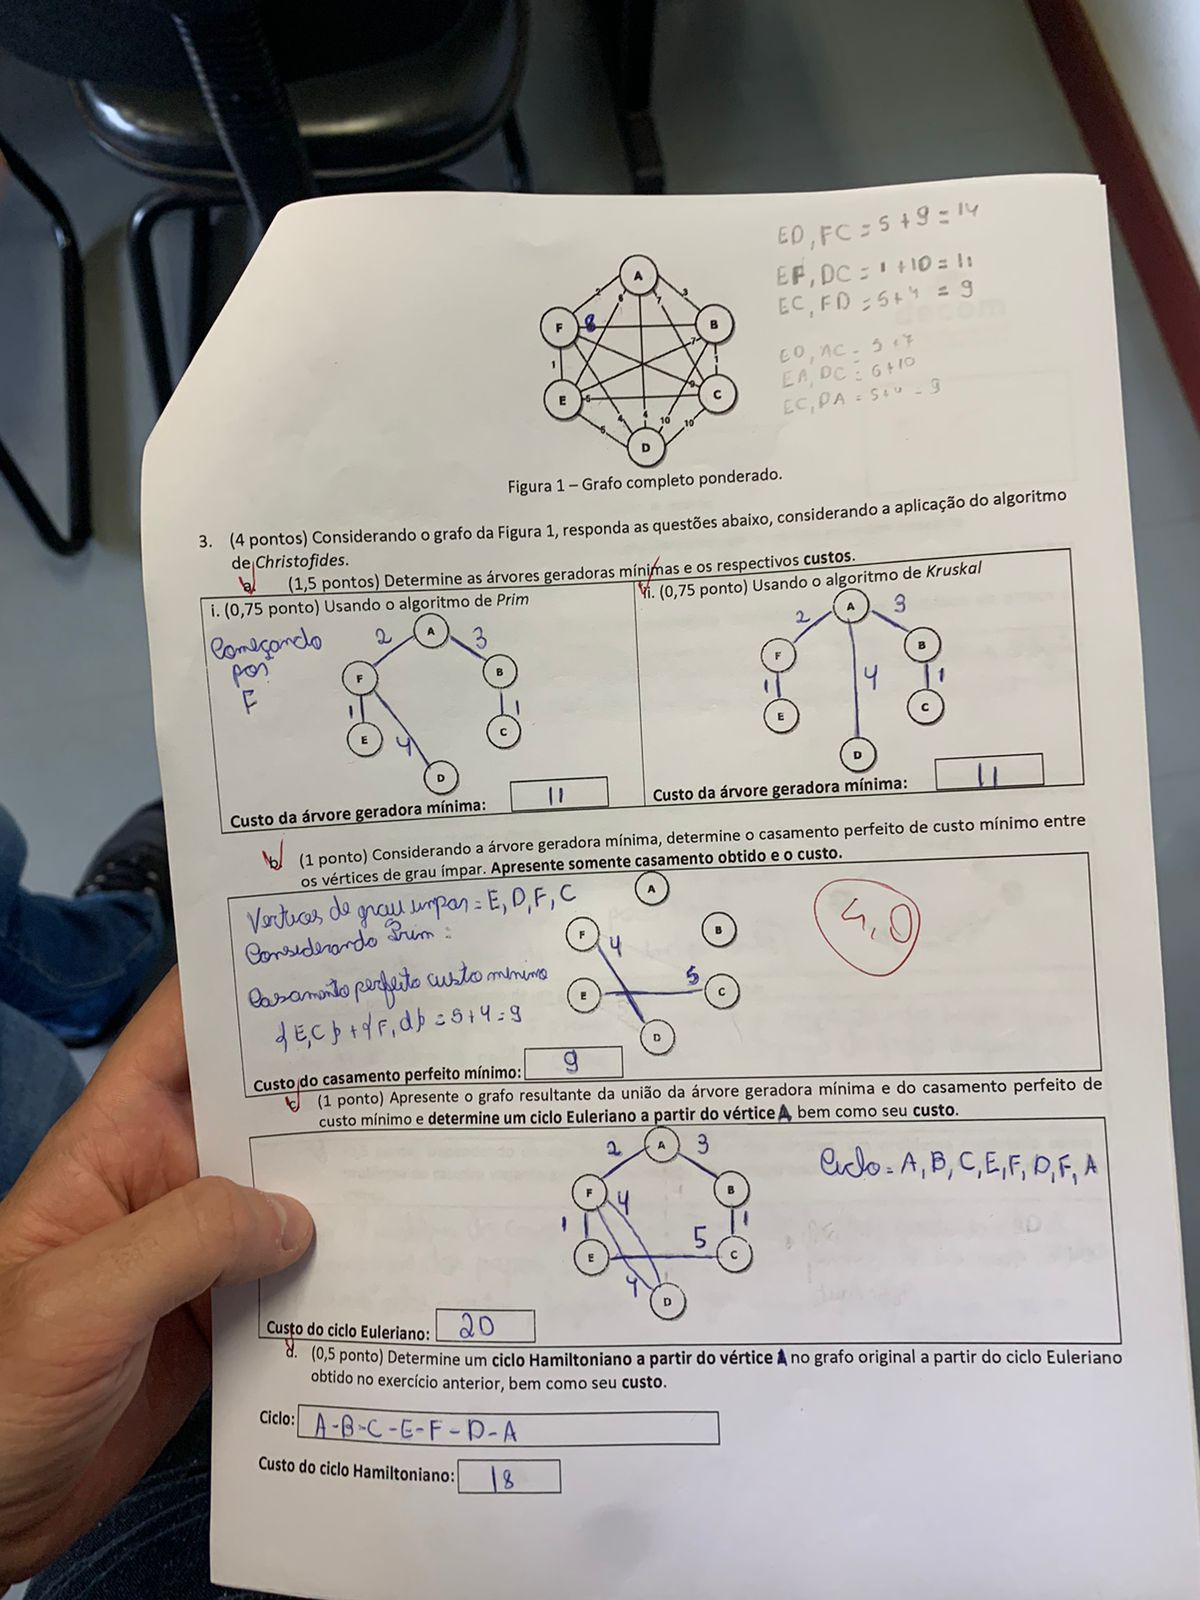 ED, FC = 5 + 9 = 14
EF, DC = 1 + 10 = 11
EC, FD = 5 + 4 = 9
ED, AC = 5 + 7
EA, DC = 6 + 10
EC, DA = 5 + 4 = 9
A
2
6
7
3
F
8
B
1
7
1
E
5
9
C
5
4
4
10
10
D
Figura 1 – Grafo completo ponderado.
3. (4 pontos) Considerando o grafo da Figura 1, responda as questões abaixo, considerando a aplicação do algoritmo
de Christofides.
a. (1,5 pontos) Determine as árvores geradoras mínimas e os respectivos custos.
i. (0,75 ponto) Usando o algoritmo de Prim
Começando
por
F
2
A
3
F
B
1
1
E
4
C
D
Custo da árvore geradora mínima: 11
ii. (0,75 ponto) Usando o algoritmo de Kruskal
2
A
3
F
B
1
4
1
E
C
D
Custo da árvore geradora mínima: 11
b. (1 ponto) Considerando a árvore geradora mínima, determine o casamento perfeito de custo mínimo entre
os vértices de grau ímpar. Apresente somente casamento obtido e o custo.
Vertices de grau impar = E, D, F, C
Considerando Prim:
Casamento perfeito custo minimo
{E,C} + {F,d} = 5 + 4 = 9
A
F
4
B
E
5
C
D
4,0
Custo do casamento perfeito mínimo: 9
c. (1 ponto) Apresente o grafo resultante da união da árvore geradora mínima e do casamento perfeito de
custo mínimo e determine um ciclo Euleriano a partir do vértice A, bem como seu custo.
2
A
3
F
4
B
1
1
E
5
C
4
D
Ciclo = A, B, C, E, F, D, F, A
Custo do ciclo Euleriano: 20
d. (0,5 ponto) Determine um ciclo Hamiltoniano a partir do vértice A no grafo original a partir do ciclo Euleriano
obtido no exercício anterior, bem como seu custo.
Ciclo: A-B-C-E-F-D-A
Custo do ciclo Hamiltoniano: 18